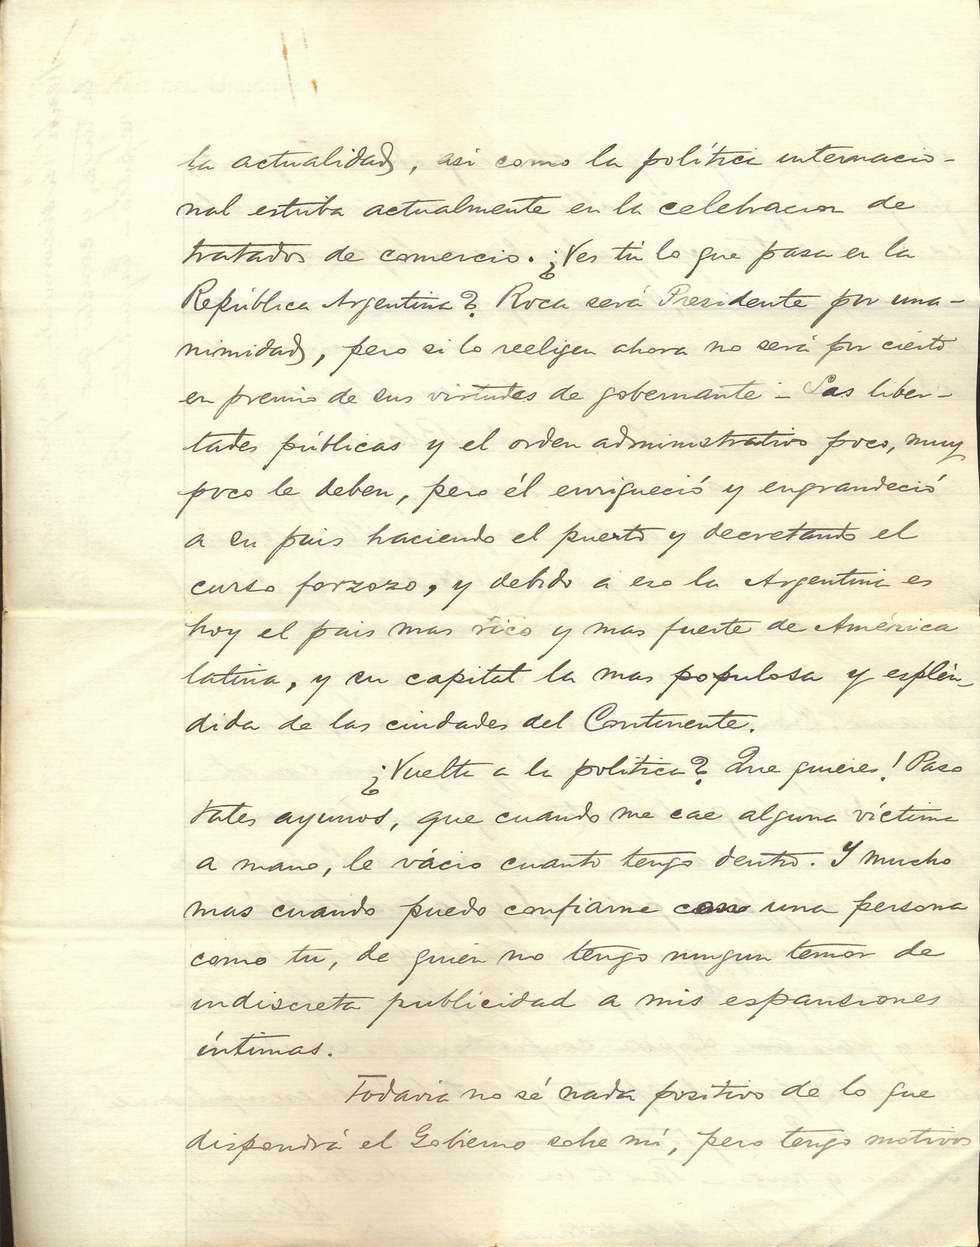 la actualidad, asi como la política internacio-
nal estriba actualmente en la celebracion de
tratados de comercio. ¿Ves tú lo que pasa en la
República Argentina? Roca será Presidente por una-
nimidad, pero si lo reeligen ahora no será por cierto
en premio de sus virtudes de gobernante - Las liber-
tades públicas y el orden administrativo poco, muy
poco le deben, pero él enriqueció y engrandeció
a su pais haciendo el puerto y decretando el
curso forzozo, y debido a eso la Argentina es
hoy el pais mas rico y mas fuerte de América
latina, y su capital la mas populosa y esplén-
dida de las ciudades del Continente.
¿Vuelta a la política? Que quieres! Paso
tales ayunos, que cuando me cae alguna víctima
a mano, le vácio cuanto tengo dentro. Y mucho
mas cuando puedo confiarme con una persona
como tu, de quien no tengo ningun temor de
indiscreta publicidad a mis espansiones
íntimas.
Todavia no sé nada positivo de lo que
dispondrá el Gobierno sobre mí, pero tengo motivos